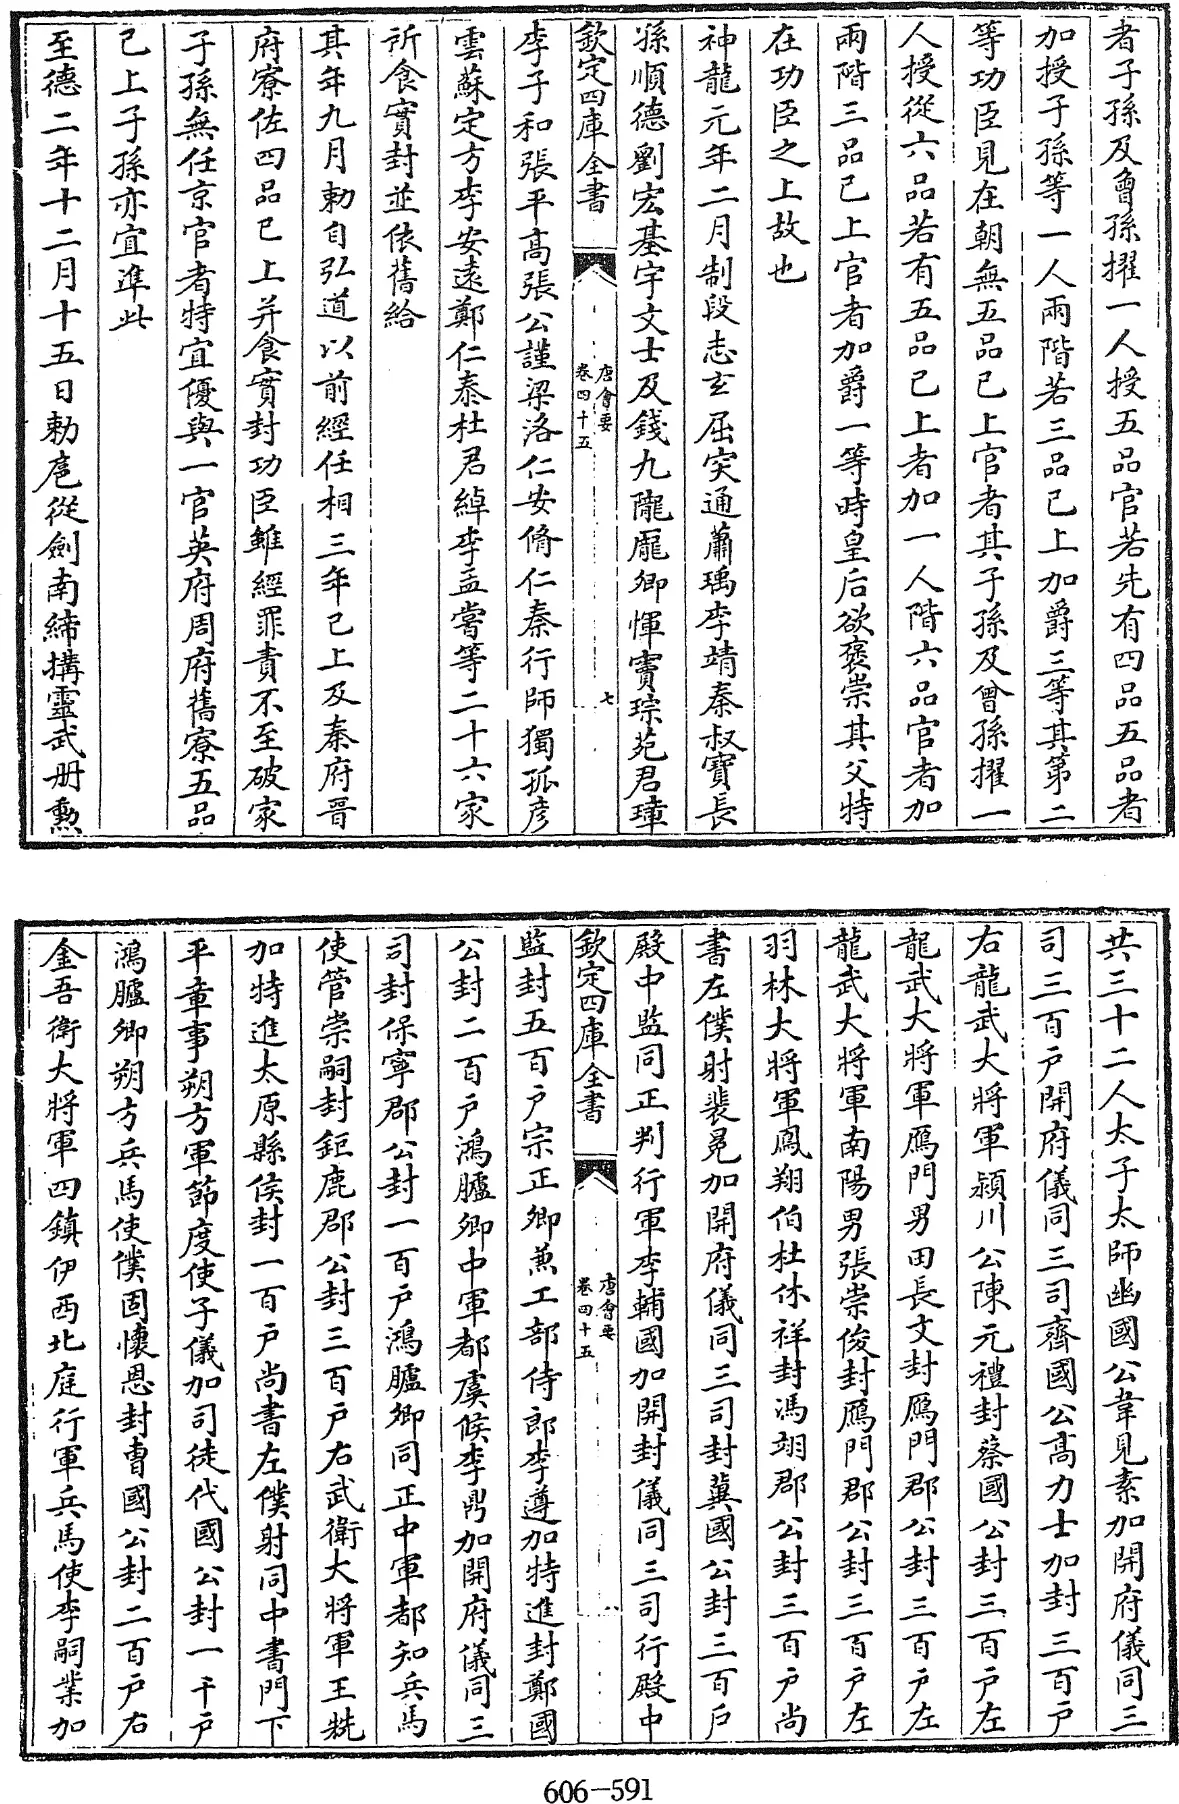 者子孫及曾孫擢一人授五品官若先有四品五品者
加授子孫等一人兩階若三品已上加爵三等其第二
等功臣見在朝無五品已上官者其子孫及曾孫擢一
人授從六品若有五品已上者加一人階六品官者加
兩階三品已上官者加爵一等時皇后欲褒崇其父特
在功臣之上故也
神龍元年二月制段志玄屈突通蕭瑀李靖秦叔寶長
孫順德劉宏基宇文士及錢九隴龐卿惲竇琮苑君璋
欽定四庫全書
唐會要
卷四十五
七
李子和張平高張公謹梁洛仁安脩仁秦行師獨孤彦
雲蘇定方李安遠鄭仁泰杜君綽李孟嘗等二十六家
所食實封並依舊給
其年九月勅自弘道以前經任相三年已上及秦府晉
府寮佐四品已上并食實封功臣雖經罪責不至破家
子孫無任京官者特宜優與一官英府周府舊寮五品
已上子孫亦宜準此
至德二年十二月十五日勅扈從劍南締搆靈武册勲
共三十二人太子太師豳國公韋見素加開府儀同三
司三百户開府儀同三司齊國公高力士加封三百户
右龍武大將軍潁川公陳元禮封蔡國公封三百户左
龍武大將軍鴈門男田長文封鴈門郡公封三百户左
龍武大將軍南陽男張崇俊封鴈門郡公封三百户左
羽林大將軍鳳翔伯杜休祥封馮翊郡公封三百户尚
書左僕射裴冕加開府儀同三司封冀國公封三百户
殿中監同正判行軍李輔國加開封儀同三司行殿中
欽定四庫全書
唐會要
卷四十五
八
監封五百户宗正卿兼工部侍郎李遵加特進封鄭國
公封二百户鴻臚卿中軍都虞候李鼎加開府儀同三
司封保寧郡公封一百户鴻臚卿同正中軍都知兵馬
使管崇嗣封鉅鹿郡公封三百户右武衛大將軍王兟
加特進太原縣侯封一百户尚書左僕射同中書門下
平章事朔方軍節度使子儀加司徒代國公封一千户
鴻臚卿朔方兵馬使僕固懷恩封豐國公封二百户右
金吾衛大將軍四鎮伊西北庭行軍兵馬使李嗣業加
606-591